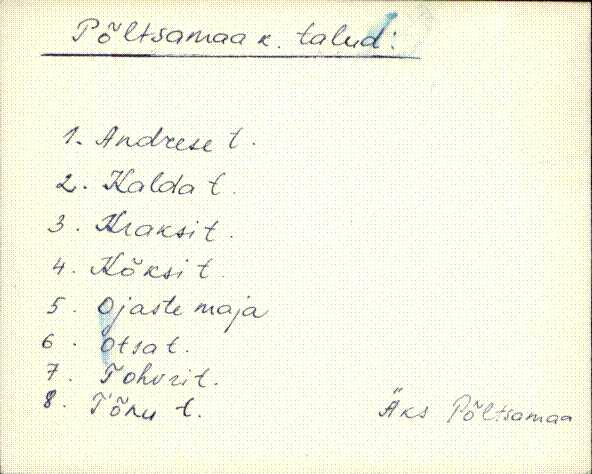 Põltsamaa k. talud:
1. Andrese t.
2. Kalda t.
3. Kraksi t.
4. Kõksi t.
5. Ojaste maja
6. Otsa t.
7. Tohvri t.
8. Tõnu t.
Äks Põltsamaa